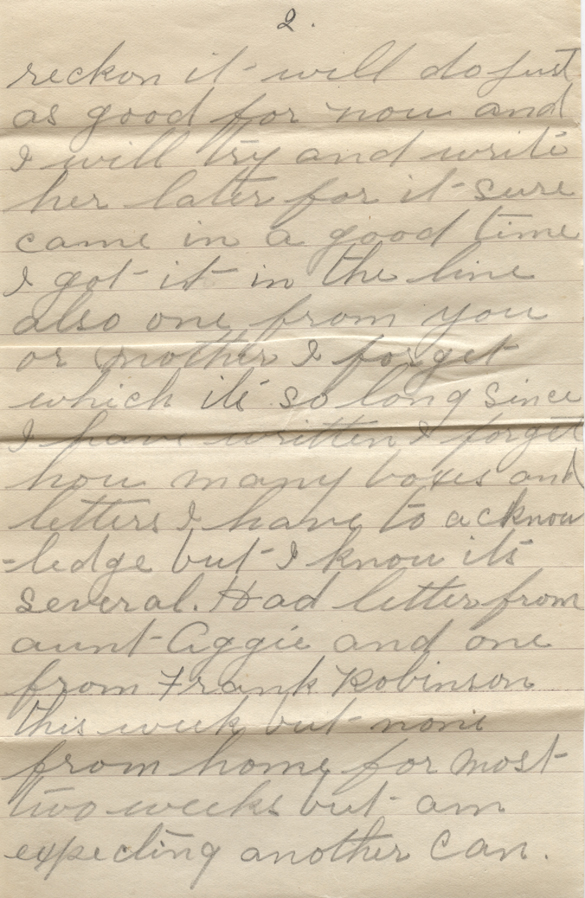 2.
reckon it will do just
as good for now and
I will try and write
her later for it sure
came in a good time
I got it in the line
also one from you
or mother I forget
which it's so long since
I have written I forget
how many boxes and
letters I have to acknow
=ledge but I know its
several. Had letter from
aunt Aggie and one
from Frank Robinson
this week but none
from home for most
two weeks but am
expecting another Can.